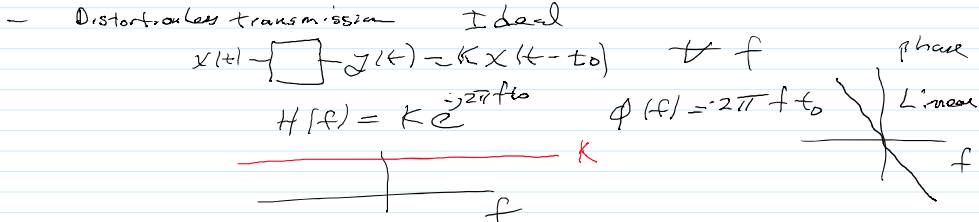 - Distortionless transmission Ideal
x(t) y(t) = K x(t-t₀) ∀ f phase
H(f) = K e^{-j2πft₀} Φ(f) = -2πft₀ Linear
K
f
f